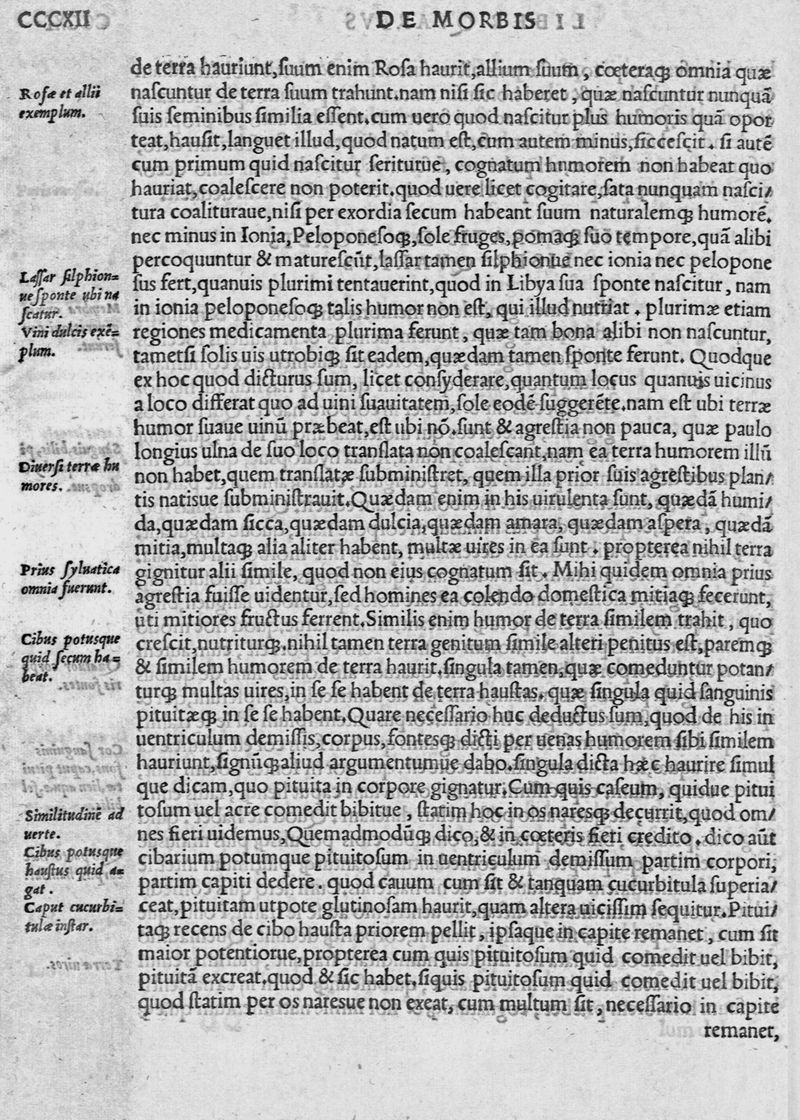 CCCXII
DE MORBIS
de terra hauriunt,ſuum enim Roſa haurit,allium ſuum, cœteraqꝫ omnia quæ
naſcuntur de terra ſuum trahunt.nam niſi ſic haberet, quæ naſcuntur nunquã
ſuis ſeminibus ſimilia eſſent.cum uero quod naſcitur plus humoris quã opor
teat,hauſit,languet illud,quod natum eſt,cum autem minus,ſicceſcit. ſi autẽ
cum primum quid naſcitur ſeriturue, cognatum hnmorem non habeat quo
hauriat,coaleſcere non poterit.quod uere licet cogitare,ſata nunquam naſci/
tura coalituraue,niſi per exordia ſecum habeant ſuum naturalemqꝫ humorẽ.
nec minus in Ionia,Peloponeſoqꝫ,ſole fruges,pomaqꝫ ſuo tempore,quã alibi
percoquuntur & matureſcũt,laſſar tamen ſilphionue nec ionia nec pelopone
ſus fert,quanuis plurimi tentauerint,quod in Libya ſua ſponte naſcitur, nam
in ionia peloponeſoqꝫ talis humor non eſt, qui illud nutriat. plurimæ etiam
regiones medicamenta plurima ferunt, quæ tam bona alibi non naſcuntur,
tametſi ſolis uis utrobiqꝫ ſit eadem,quædam tamen ſponte ferunt. Quodque
ex hoc quod dicturus ſum, licet conſyderare,quantum locus quanuis uicinus
a loco differat quo ad uini ſuauitatem,ſole eodẽ ſuggerẽte.nam eſt ubi terræ
humor ſuaue uinũ præbeat,eſt ubi nõ.ſunt & agreſtia non pauca, quæ paulo
longius ulna de ſuo loco tranſlata non coaleſcant,nam ea terra humorem illũ
non habet,quem tranſlatæ ſubminiſtret, quem illa prior ſuis agreſtibus plan/
tis natisue ſubminiſtrauit.Quædam enim in his uirulenta ſunt, quædã humi/
da,quædam ſicca,quædam dulcia,quædam amara, quædam aſpera, quædã
mitia,multaqꝫ alia aliter habent, multæ uires in ea ſunt. propterea nihil terra
gignitur alii ſimile, quod non eius cognatum ſit. Mihi quidem omnia prius
agreſtia fuiſſe uidentur,ſed homines ea colendo domeſtica mitiaqꝫ fecerunt,
uti mitiores fructus ferrent.Similis enim humor de terra ſimilem trahit, quo
creſcit,nutriturqꝫ.nihil tamen terra genitum ſimile alteri penitus eſt,paremqꝫ
& ſimilem humorem de terra haurit.ſingula tamen,quæ comeduntur potan/
turqꝫ multas uires,in ſe ſe habent de terra hauſtas. quæ ſingula quid ſanguinis
pituitæqꝫ in ſe ſe habent.Quare neceſſario huc deductus ſum,quod de his in
uentriculum demiſſis,corpus,fonteſqꝫ dicti per uenas humorem ſibi ſimilem
hauriunt,ſignũqꝫ aliud argumentumue dabo.ſingula dicta hæc haurire ſimul
que dicam,quo pituita in corpore gignatur.Cum quis caſeum, quidue pitui
toſum uel acre comedit bibitue, ſtatim hoc in os nareſqꝫ decurrit,quod om/
nes fieri uidemus,Quemadmodũqꝫ dico,& in cœteris fieri credito. dico aũt
cibarium potumque pituitoſum in uentriculum demiſſum partim corpori,
partim capiti dedere. quod cauum cum ſit & tanquam cucurbitula ſuperia/
ceat,pituitam utpote glutinoſam haurit,quam altera uiciſſim ſequitur.Pitui/
taqꝫ recens de cibo hauſta priorem pellit, ipſaque in capite remanet, cum ſit
maior potentiorue,propterea cum quis pituitoſum quid comedit uel bibit,
pituitã excreat.quod & ſic habet.ſiquis pituitoſum quid comedit uel bibit,
quod ſtatim per os nareſue non exeat, cum multum ſit, neceſſario in capite
remanet,
Roſæ et allii
exemplum.
Laſſar ſilphion=
ue ſponte ubi na
ſcatur.
Vini dulcis exẽ=
plum.
Diuerſi terræ hu
mores.
Prius ſyluatica
omnia fuerunt.
Cibus potusque
quid ſecum ha=
beat.
Similitudinẽ ad
uerte.
Cibus potusque
hauſtus quid a=
gat.
Caput cucurbi=
tulæ inſtar.